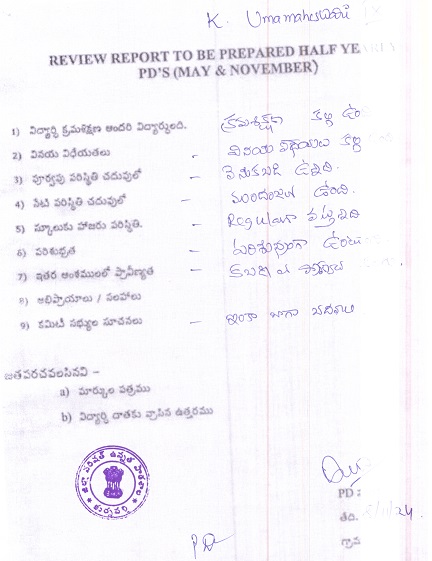 K. Umamaheswari
REVIEW REPORT TO BE PREPARED HALF YEARLY
PD'S (MAY & NOVEMBER)
1) విద్యార్థి క్రమశిక్షణ ఆందరి విద్యార్థులది. క్రమశిక్షణ కల్గి ఉం
2) వినయ విధేయతలు - వినయ విధేయతలు కల్గి
3) పూర్వపు పరిస్థితి చదువులో - వెనుకబడి ఉన్నది.
4) నేటి పరిస్థితి చదువులో - ముందంజలో ఉంది.
5) స్కూలుకు హాజరు పరిస్థితి. - Regularగా వస్తున్నది
6) పరిశుభ్రత - పరిశుభ్రంగా ఉంటుం
7) ఇతర అంశములలో ప్రావీణ్యత -
8) అభిప్రాయాలు / సలహాలు
9) కమిటీ సభ్యుల సూచనలు - ఇంకా బాగా చదవాలి
జతపరచవలసినవి -
a) మార్కుల పత్రము
b) విద్యార్థి దాతకు వ్రాసిన ఉత్తరము
జిల్లా పరిషత్ ఉన్నత పాఠశాల
PD :
తేది. /11/24
గ్రామ
PD